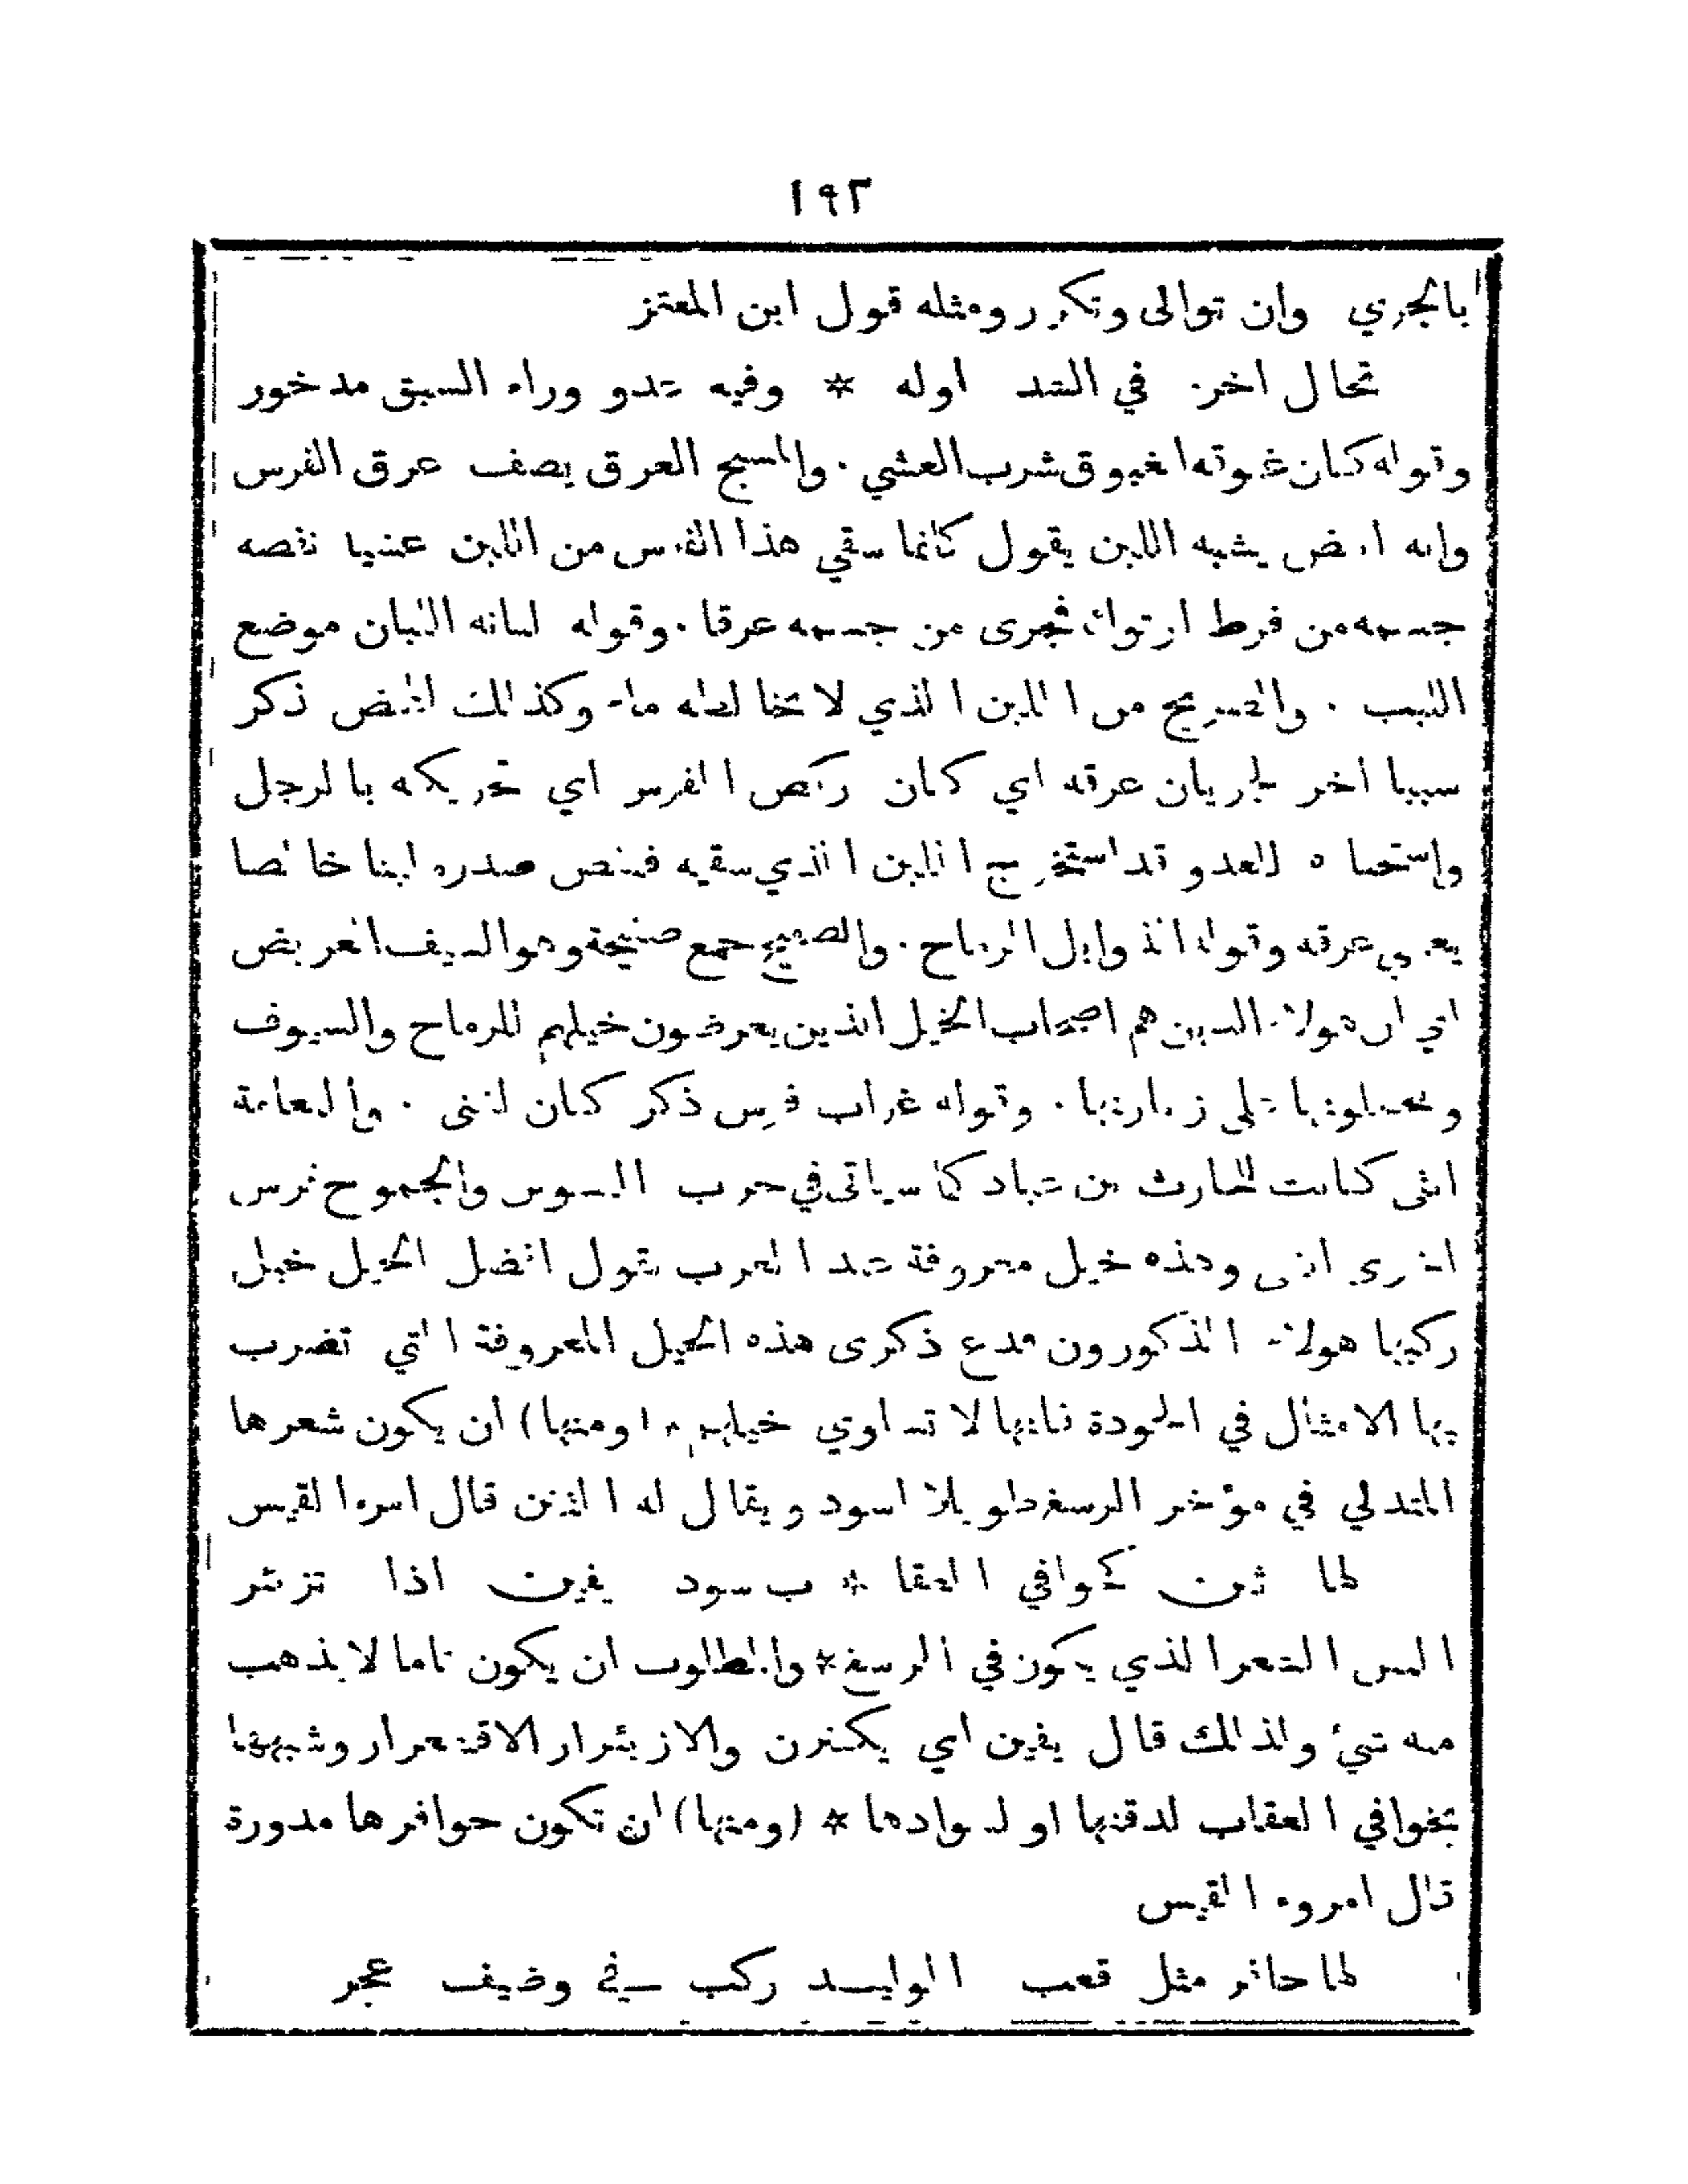 ١٩٢
بالجري وان توالى وتكرر ومثله قول ابن المعتز
تخال اخره في الشد اوله * وفيه عدو وراء السبق مدخور
وقوله كان غبوقه الغبوق شرب العشي . والمسيح العرق يصف عرق الفرس
وانه ابيض يشبه اللبن يقول كانما سقي هذا الفرس من اللبن عشيا نفضه
جسمه من فرط ارتوائه فجرى من جسمه عرقا . وقوله لبانه اللبان موضع
اللبب . والصريح من اللبن الذي لا يخالطه ماء وكذلك المحض ذكر
سببا اخر لجريان عرقه اي كان ركض الفرس اي تحريكه بالرجل
واستحثاثه للعدو قد استخرج اللبن الذي سقيه فنفض صدره لبنا خالصا
يعني عرقه وقوله الذوابل الرماح . والصفيح جمع صفيحة وهو السيف العريض
اي ان هولاء الذين هم اصحاب الخيل الذين يعرضون خيلهم للرماح والسيوف
ويحملونها على زيارتها . وقوله غراب فرس ذكر كان لغنى . والنعامة
انثى كانت للحارث بن عباد كما سياتي في حرب البسوس والجموح فرس
اخرى انثى وهذه خيل معروفة عند العرب يقول افضل الخيل خيل
ركبها هولاء المذكورون فدع ذكرى هذه الخيل المعروفة التي تضرب
بها الامثال في الجودة فانها لا تساوي خيلهم * (ومنها) ان يكون شعرها
المتدلي في مؤخر الرسغ طويلا اسود ويقال له الثنن قال امرء القيس
لها ثنن كخوافي العقا * ب سود يفين اذا تزبئر
الثنن الشعر الذي يكون في الرسغ * والمطلوب ان يكون تاما لا يذهب
منه شيء ولذلك قال يفين اي يكثرن والازبئرار الاقشعرار وشبهها
بخوافي العقاب لدقتها او لسوادها * (ومنها) ان تكون حوافرها مدورة
قال امروء القيس
لها حافر مثل قعب الوليد ركب في وضيف عجر